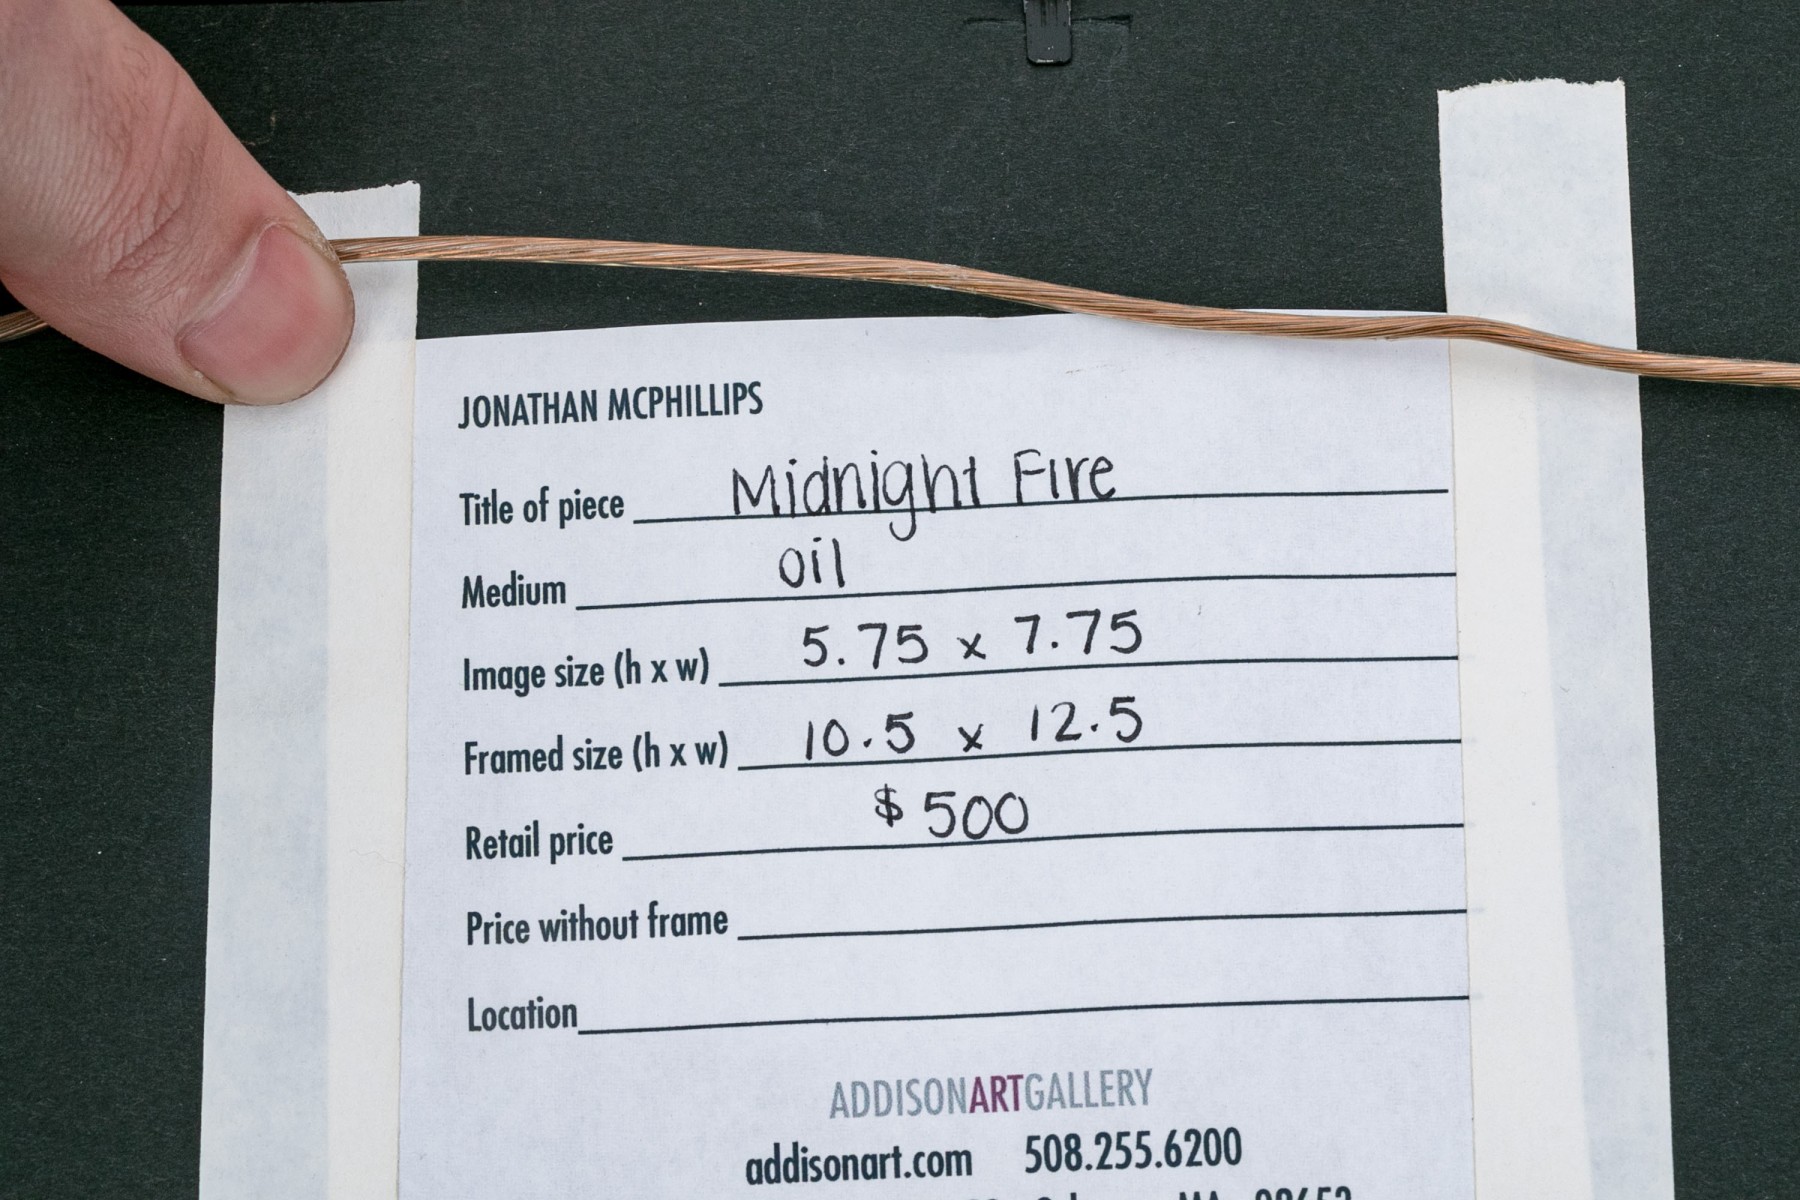 JONATHAN MCPHILLIPS
Title of piece Midnight Fire
Medium oil
Image size (h x w) 5.75 x 7.75
Framed size (h x w) 10.5 x 12.5
Retail price $500
Price without frame
Location
ADDISONARTGALLERY
addisonart.com 508.255.6200
MA